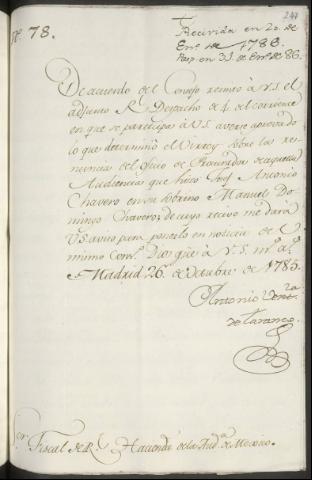 244
N. 78.
Recivida en 20. de
En.o de 1786.
Resp. en 31. de En.o de 86.
De acuerdo del Consejo remito à V.S. el
adjunto R.l Despacho de 4. del corriente
en que se participa à V.S. averse aprovado
lo que determinó el Virrey sobre la re-
nuncia del oficio de Procurador de aquella
Audiencia que hizo Josef Antonio
Chavero en su sobrino Manuel Do-
mingo Chavero; de cuyo recivo me dará
V.S. aviso para ponerlo en noticia de el
mismo Con.o Dios gūe à V.S. m.s a.s
Madrid 26. de Octubre de 1785.
Antonio Vent.ra
de Taranco.
S.or Fiscal de R.l Hacienda de la Aud.a de Mexico.